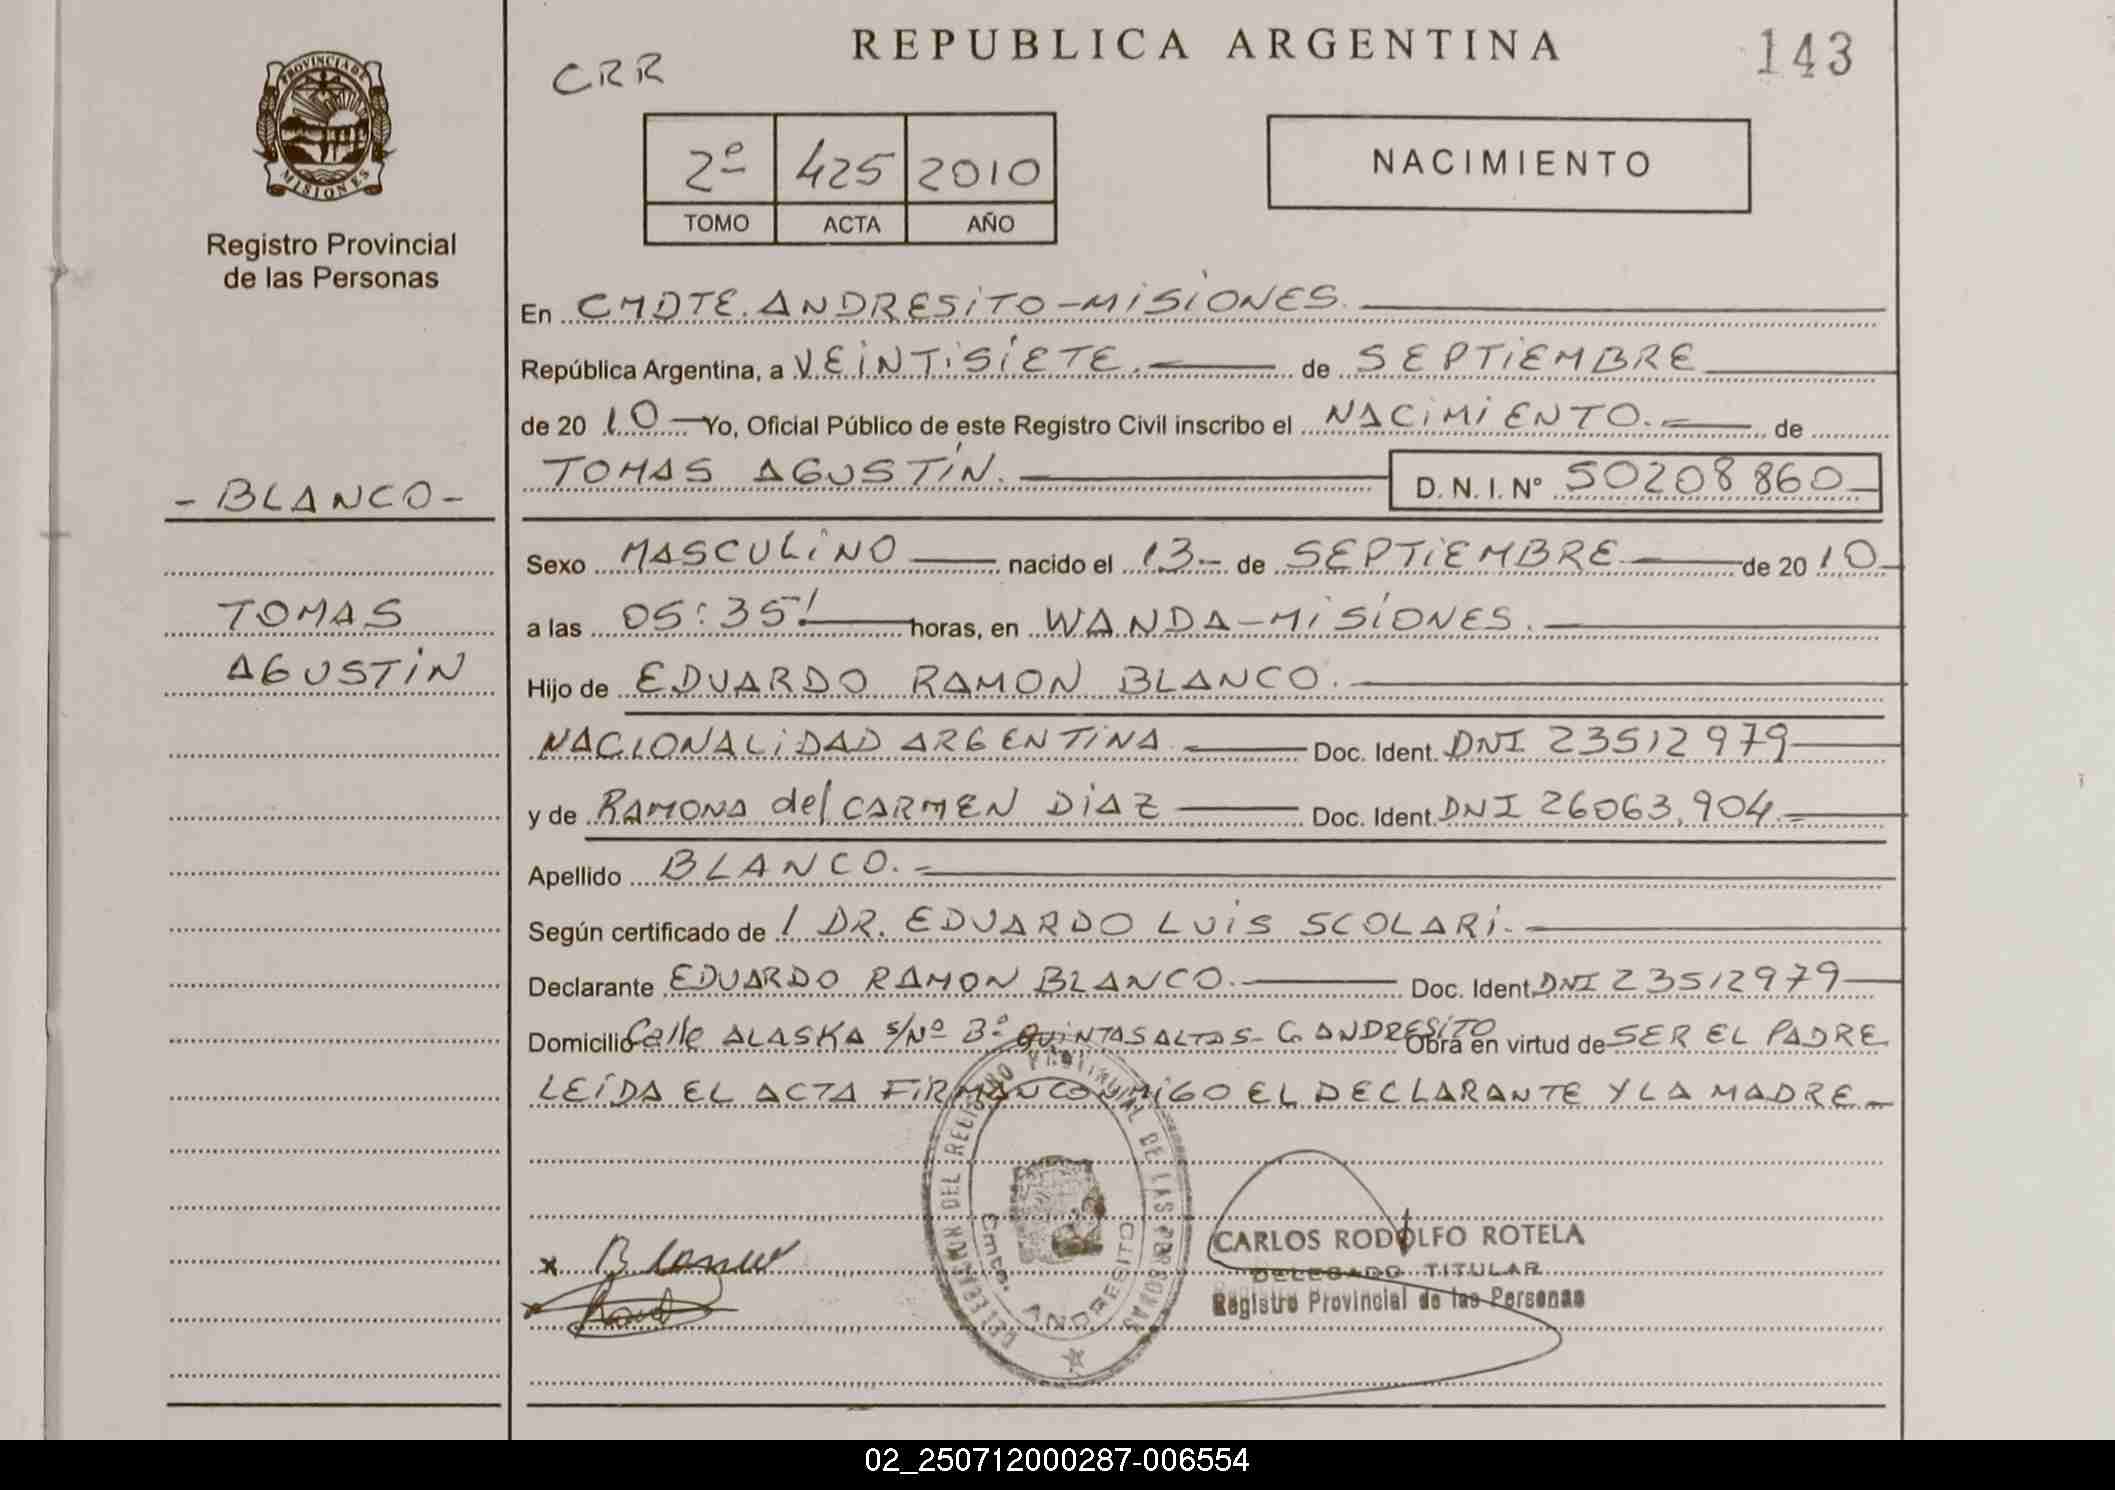 PROVINCIA DE
MISIONES
Registro Provincial
de las Personas
- BLANCO -
TOMAS
AGUSTIN
CRR
REPUBLICA ARGENTINA
143
2º 425 2010
TOMO ACTA AÑO
NACIMIENTO
En CMDTE. ANDRESITO - MISIONES.
República Argentina, a VEINTISIETE. de SEPTIEMBRE
de 20 10 Yo, Oficial Público de este Registro Civil inscribo el NACIMIENTO. de
TOMAS AGUSTÍN. D. N. I. Nº 50208860
Sexo MASCULINO nacido el 13 - de SEPTIEMBRE de 20 10
a las 05:35! horas, en WANDA - MISIONES.
Hijo de EDUARDO RAMON BLANCO.
NACIONALIDAD ARGENTINA Doc. Ident. DNI 23512979
y de RAMONA del CARMEN DIAZ Doc. Ident. DNI 26063.904
Apellido BLANCO.
Según certificado de / DR. EDUARDO LUIS SCOLARI.
Declarante EDUARDO RAMON BLANCO. Doc. Ident. DNI 23512979
Domicilio Calle ALASKA S/Nº Bº QUINTAS ALTAS - C. ANDRESITO Obra en virtud de SER EL PADRE
LEIDA EL ACTA FIRMAN CONMIGO EL DECLARANTE Y LA MADRE
DELEGACION DEL REGISTRO PROVINCIAL DE LAS PERSONAS
Cmte. ANDRESITO
x Blanco
x
CARLOS RODOLFO ROTELA
DELEGADO TITULAR
Registro Provincial de las Personas
02_250712000287-006554